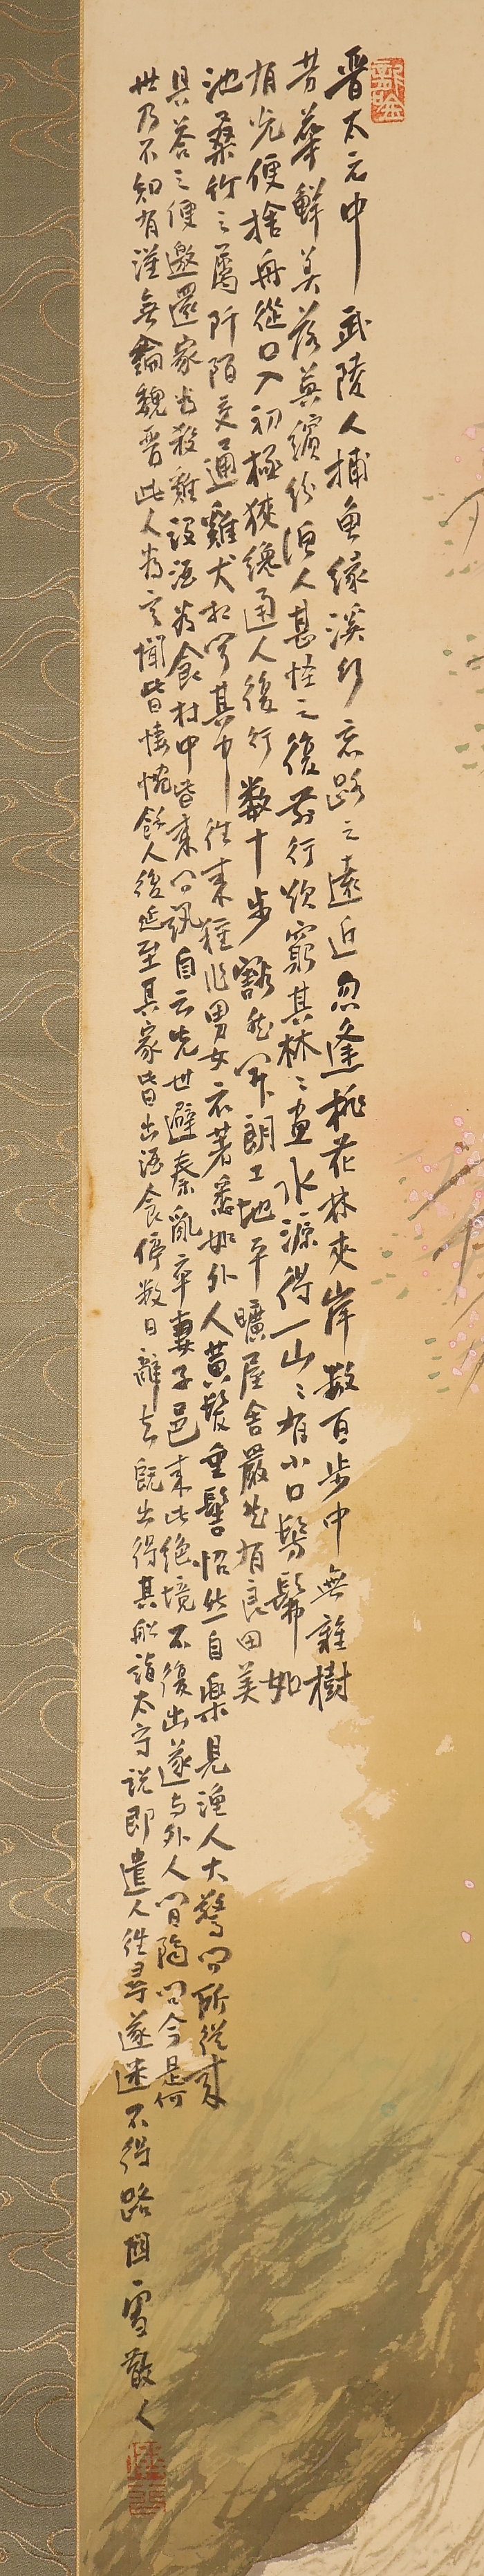 晋太元中武陵人捕魚緣溪行忘路之遠近忽逢桃花林夾岸數百步中無雜樹
芳華鮮美落英繽紛漁人甚怪之後前行欲窮其林〻盡水源得一山〻有小口髣髴如
有光便捨舟從口入初極狹纔通人復行數十步豁然開朗土地平曠屋舍嚴然有良田美
池桑竹之屬阡陌交通雞犬相聞其中往來種作男女衣著悉如外人黃髮垂髫怡然自樂見漁人大驚問所從來
具答之便邀還家為殺雞設酒為食村中皆來問訊自云先世避秦亂率妻子邑來此絕境不復出遂与外人間隔問今是何
世乃不知有漢無論魏晋此人為言聞皆悽惋餘人後延至其家皆出酒食停數日辭去既出得其船詣太守說即遣人往尋遂迷不得路 雪散人